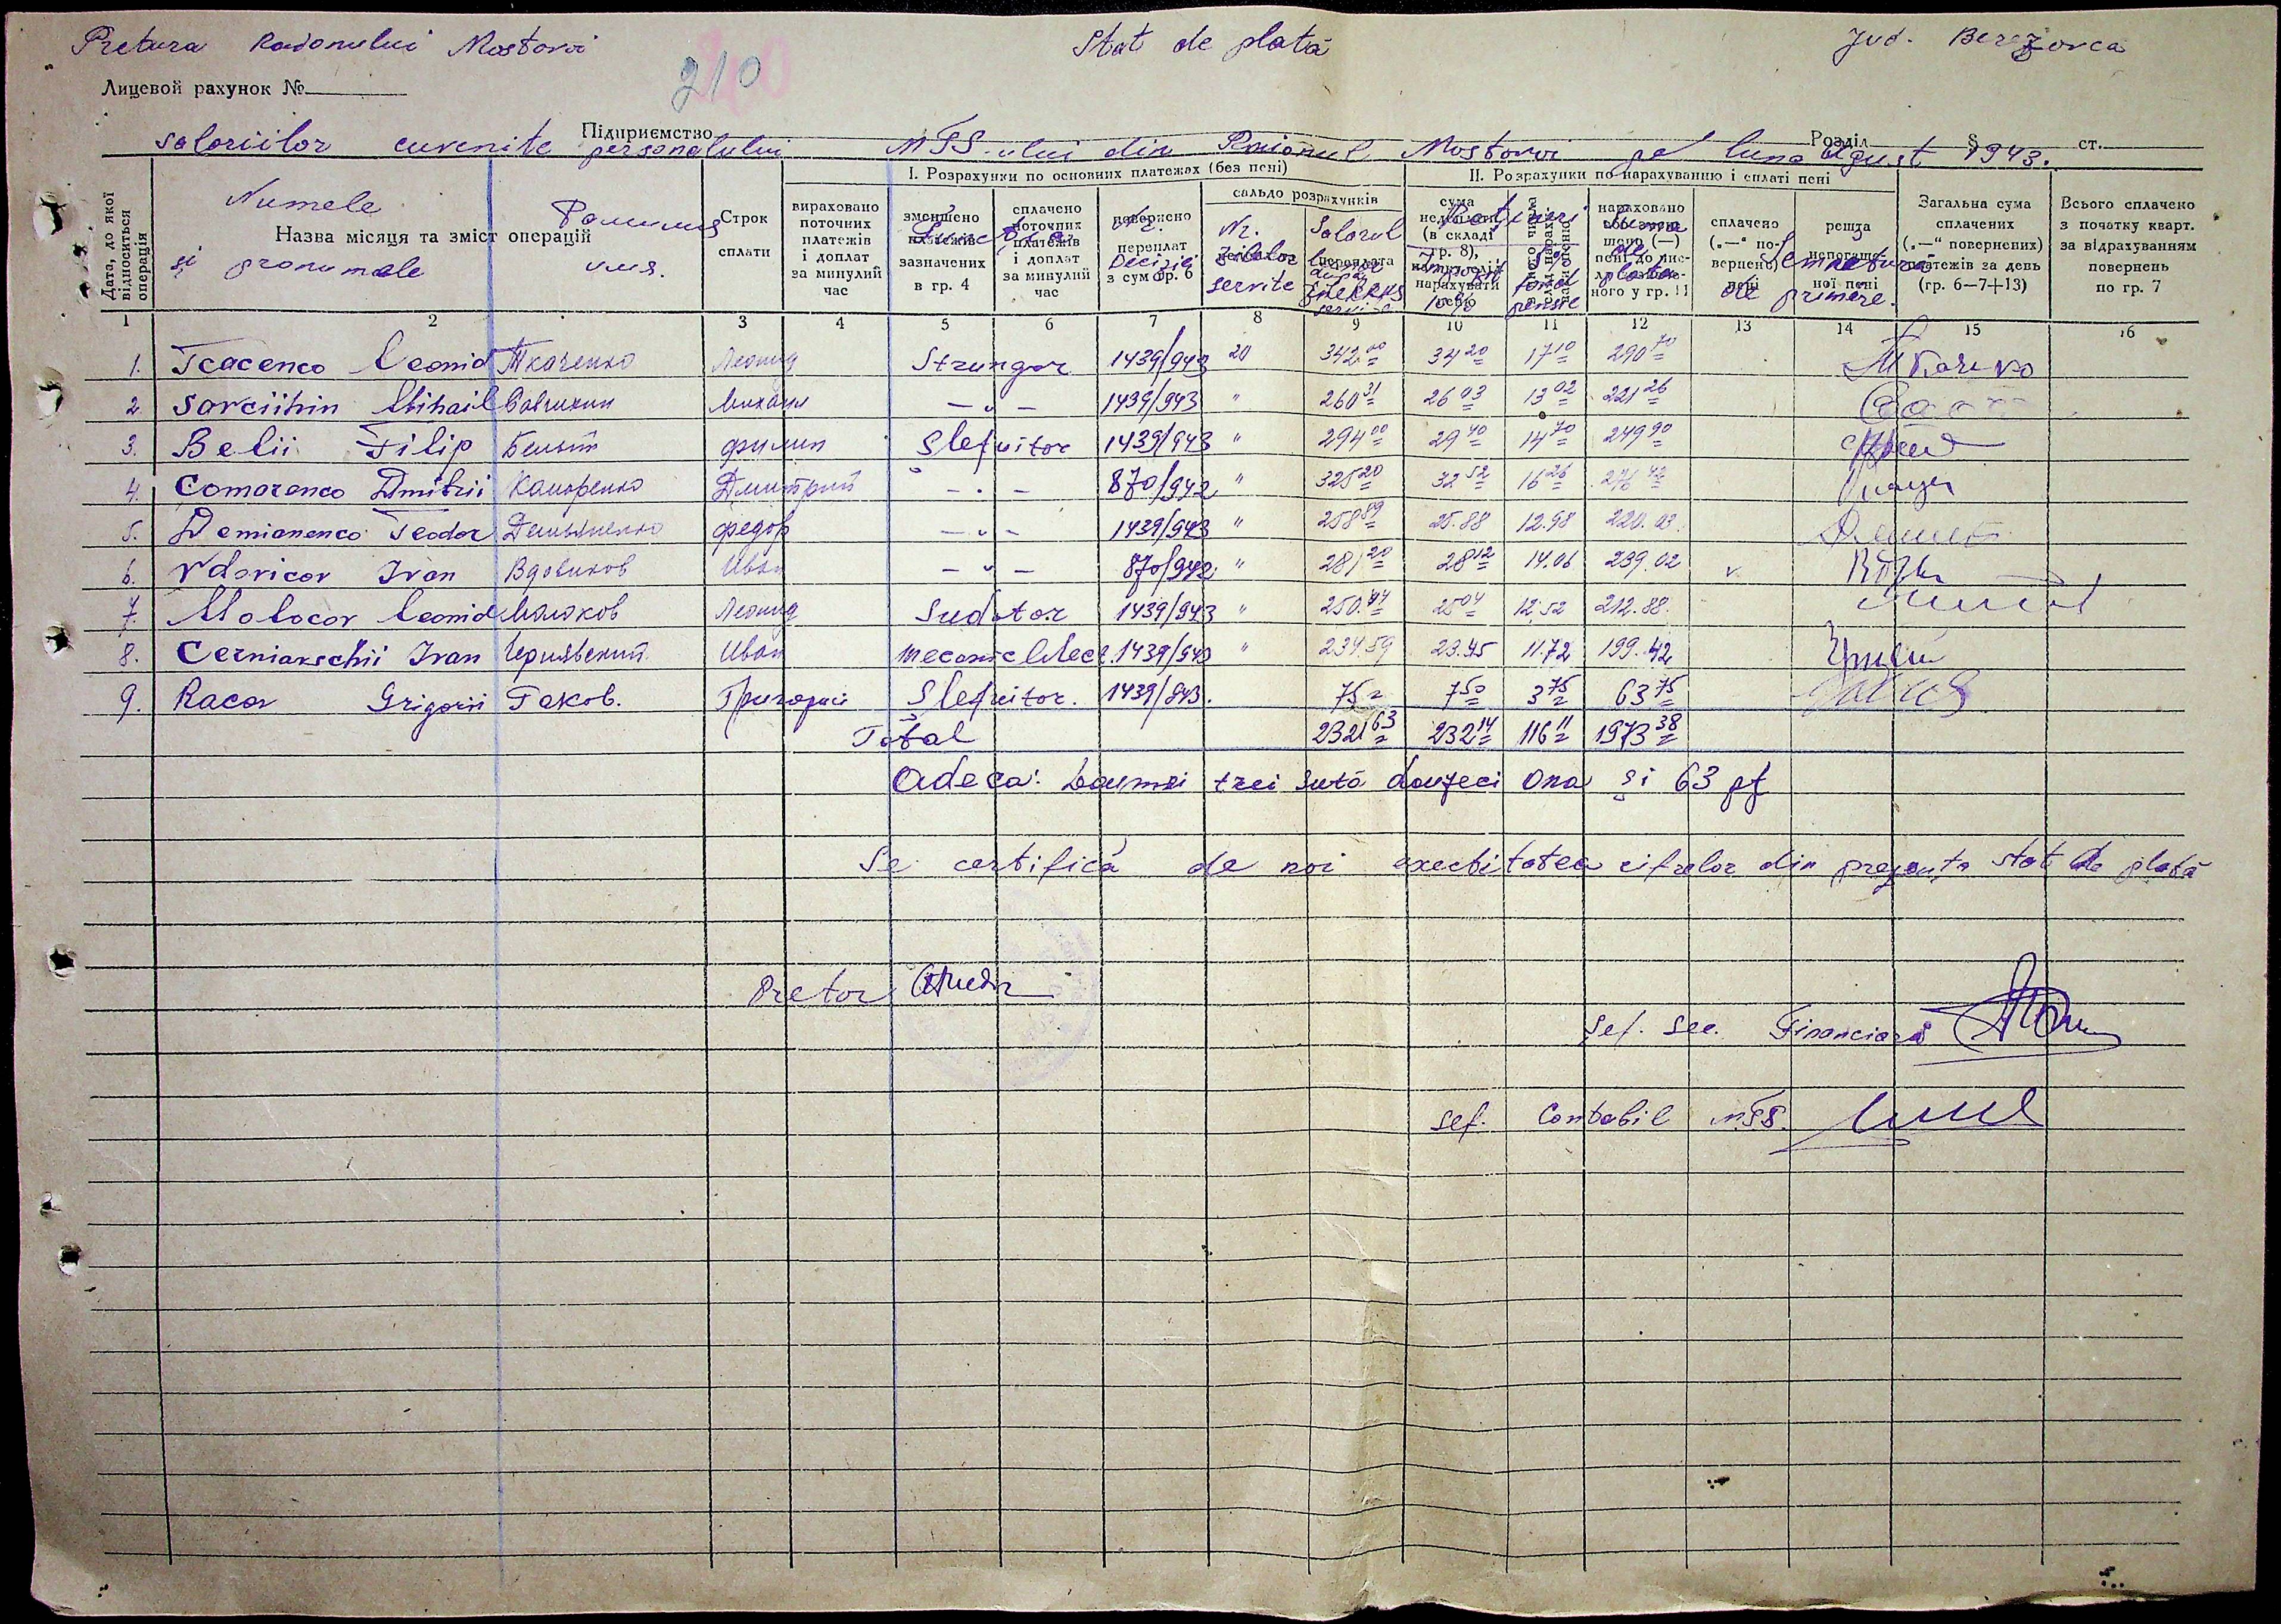 Pretura Raionului Mostovoi Stat de plată Jud. Berezovca
210
Лицевой рахунок №
Підприємство Розділ § ст.
salariilor cuvenite personalului MTS-ului din Raionul Mostovoi pe luna August 1943.
I. Розрахунки по основних платежах (без пені) II. Розрахунки по нарахуванню і сплаті пені
Дата, до якої відноситься операція
Numele
Назва місяця та зміст операцій
și pronumele
Фамилия
имя.
Строк сплати
вираховано поточних платежів і доплат за минулий час
зменшено платежів зазначених в гр. 4
сплачено поточних платежів і доплат за минулий час
Nr. Decizii
повернено переплат з сум гр. 6
сальдо розрахунків
Nr. zilelor servite
Salarul
переплата
сума недоплати (в складі гр. 8),
10%
fond pensie
нараховано
Suma de plată
сплачено („—“ повернено) пені
решта непогашеної пені
Semnătura de primire.
Загальна сума сплачених („—“ повернених) платежів за день (гр. 6—7+13)
Всього сплачено з початку кварт. за відрахуванням повернень по гр. 7
1 2 3 4 5 6 7 8 9 10 11 12 13 14 15 16
1. Tcacenco Leonid Ткаченко Леонид Strungar 1439/943 20 342.00 34 20 17 10 290 70
2. Savciihin Mihail Савчихин Михаил —"— 1439/943 " 260 31 26 03 13 02 221 26
3. Belii Filip Белый филип Slefuitor 1439/943 " 294 00 29 40 14 70 249 90
4. Comarenco Dmitrii Каморенко Дмитрий —"— 870/942 " 325 20 32 52 16 26 276 42
5. Demianenco Feodor Демьяненко федор —"— 1439/943 " 258 89 25.88 12.98 220.03
6. Vdovicov Ivan Вдовиков Иван —"— 870/942 " 281 20 28 12 14.06 239.02 v
7. Molocov Leonid Молоков Леонид Sudator 1439/943 " 250.44 25 04 12.52 212.88.
8. Cerniavschii Ivan Чернявский Иван mecanic Mecc. 1439/943 " 234.59 23.45 11.72 199.42
9. Racov Grigorii Раков. Григорий Slefuitor. 1439/943. 75 = 7 50 3 75 63 75
Total 2321 63 232 14 116 11 1973 38
Adeca: Douămii trei sută douzeci una și 63 pf
Se certifică de noi exactitatea cifrelor din prezenta stat de plată
Pretor
Șef. Sec. Financiară
Șef. Contabil MTS.